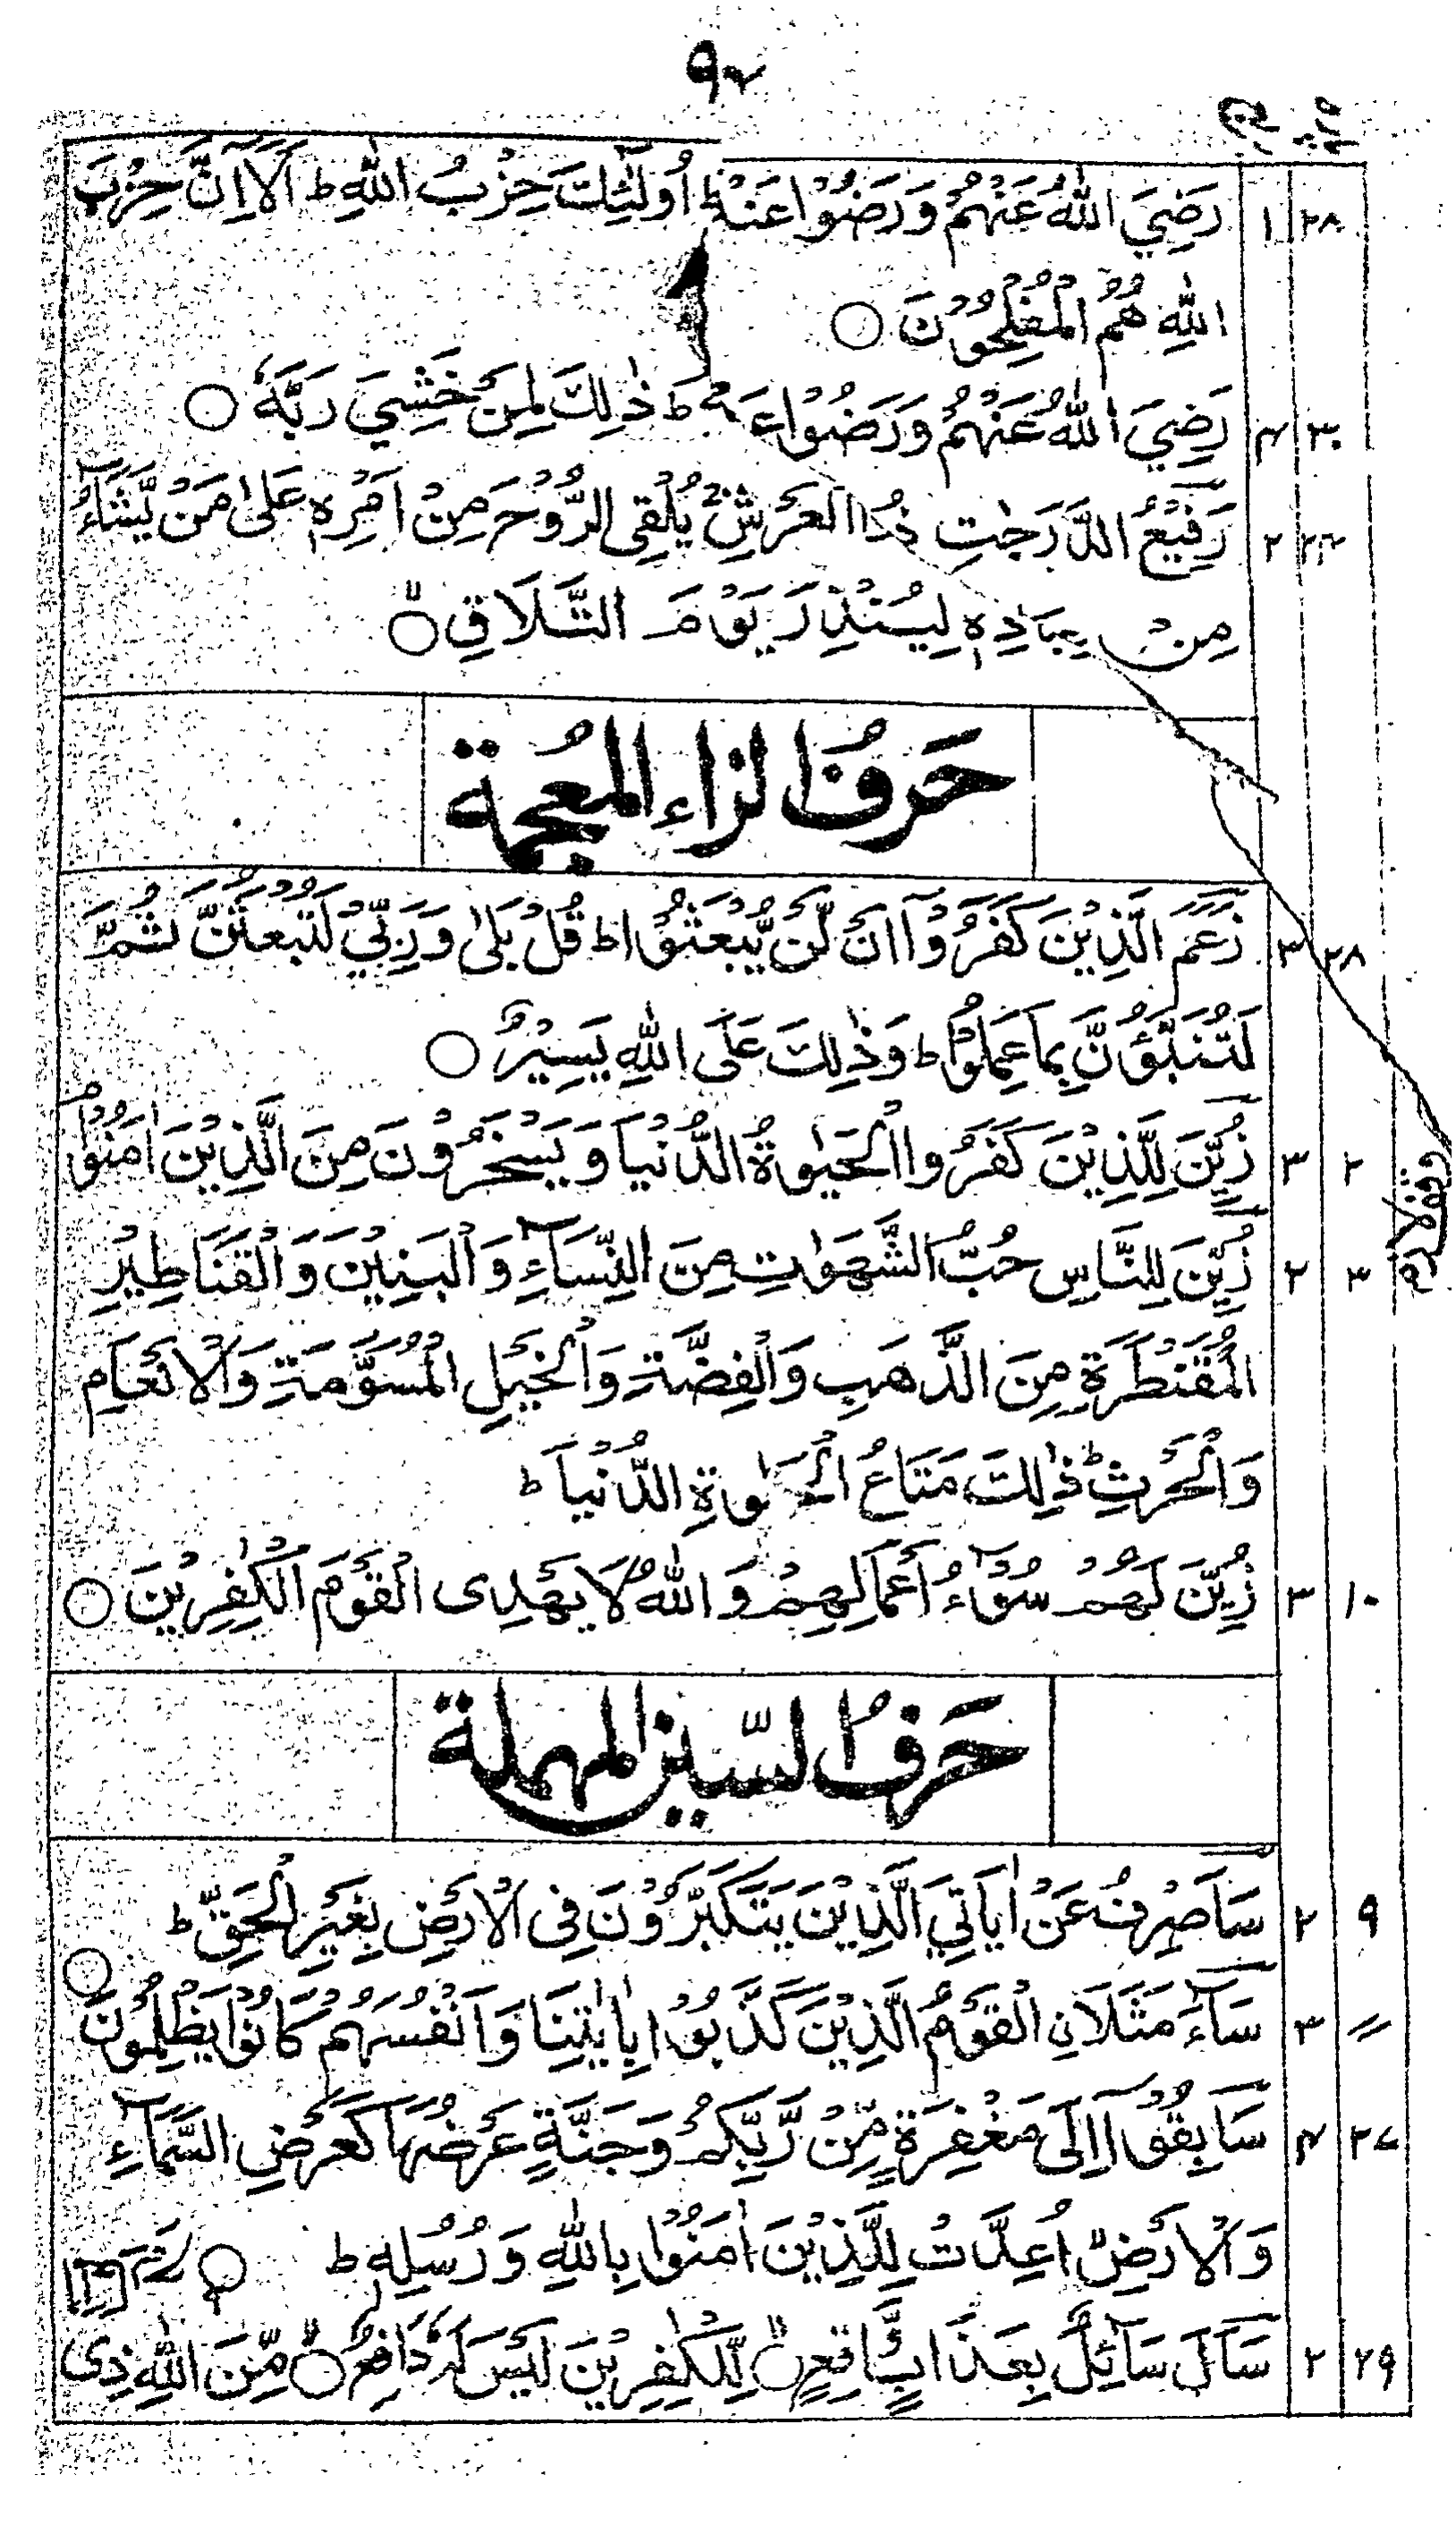 ٩٢
٢٨ ١ رَضِيَ اللّٰهُ عَنْهُمْ وَرَضُوْا عَنْهُ ط اُولٰٓئِكَ حِزْبُ اللّٰهِ ط اَلَآ اِنَّ حِزْبَ
اللّٰهِ هُمُ الْمُفْلِحُوْنَ ○
٣٠ ٤ رَضِيَ اللّٰهُ عَنْهُمْ وَرَضُوْا ط ذٰلِكَ لِمَنْ خَشِيَ رَبَّهٗ ○
٢٤ ٢ رَفِيْعُ الدَّرَجٰتِ ذُو الْعَرْشِ يُلْقِى الرُّوْحَ مِنْ اَمْرِهٖ عَلٰى مَنْ يَّشَآءُ
مِنْ عِبَادِهٖ لِيُنْذِرَ يَوْمَ التَّلَاقِ ○
حَرْفُ الزاء المعجمة
٢٨ ٣ زَعَمَ الَّذِيْنَ كَفَرُوْٓا اَنْ لَّنْ يُّبْعَثُوْا ط قُلْ بَلٰى وَرَبِّيْ لَتُبْعَثُنَّ ثُمَّ
لَتُنَبَّؤُنَّ بِمَا عَمِلْتُمْ ط وَذٰلِكَ عَلَى اللّٰهِ يَسِيْرٌ ○
٢ ٣ زُيِّنَ لِلَّذِيْنَ كَفَرُوا الْحَيٰوةُ الدُّنْيَا وَيَسْخَرُوْنَ مِنَ الَّذِيْنَ اٰمَنُوْا
٣ ٢ زُيِّنَ لِلنَّاسِ حُبُّ الشَّهَوٰتِ مِنَ النِّسَآءِ وَالْبَنِيْنَ وَالْقَنَاطِيْرِ
الْمُقَنْطَرَةِ مِنَ الذَّهَبِ وَالْفِضَّةِ وَالْخَيْلِ الْمُسَوَّمَةِ وَالْاَنْعَامِ
وَالْحَرْثِ ط ذٰلِكَ مَتَاعُ الْحَيٰوةِ الدُّنْيَا ط
١٠ ٣ زُيِّنَ لَهُمْ سُوْٓءُ اَعْمَالِهِمْ وَاللّٰهُ لَا يَهْدِى الْقَوْمَ الْكٰفِرِيْنَ ○
حَرْفُ السّين المهملة
٩ ٢ سَاَصْرِفُ عَنْ اٰيَاتِيَ الَّذِيْنَ يَتَكَبَّرُوْنَ فِى الْاَرْضِ بِغَيْرِ الْحَقِّ ط
〃 ٣ سَآءَ مَثَلَانِ الْقَوْمُ الَّذِيْنَ كَذَّبُوْا بِاٰيٰتِنَا وَاَنْفُسَهُمْ كَانُوْا يَظْلِمُوْنَ ○
٢٧ ٤ سَابِقُوْٓا اِلٰى مَغْفِرَةٍ مِّنْ رَّبِّكُمْ وَجَنَّةٍ عَرْضُهَا كَعَرْضِ السَّمَآءِ
وَالْاَرْضِ اُعِدَّتْ لِلَّذِيْنَ اٰمَنُوْا بِاللّٰهِ وَرُسُلِهٖ ط
٢٩ ٢ سَاَلَ سَآئِلٌ بِعَذَابٍ وَّاقِعٍ ○ لِّلْكٰفِرِيْنَ لَيْسَ لَهٗ دَافِعٌ ○ مِّنَ اللّٰهِ ذِى